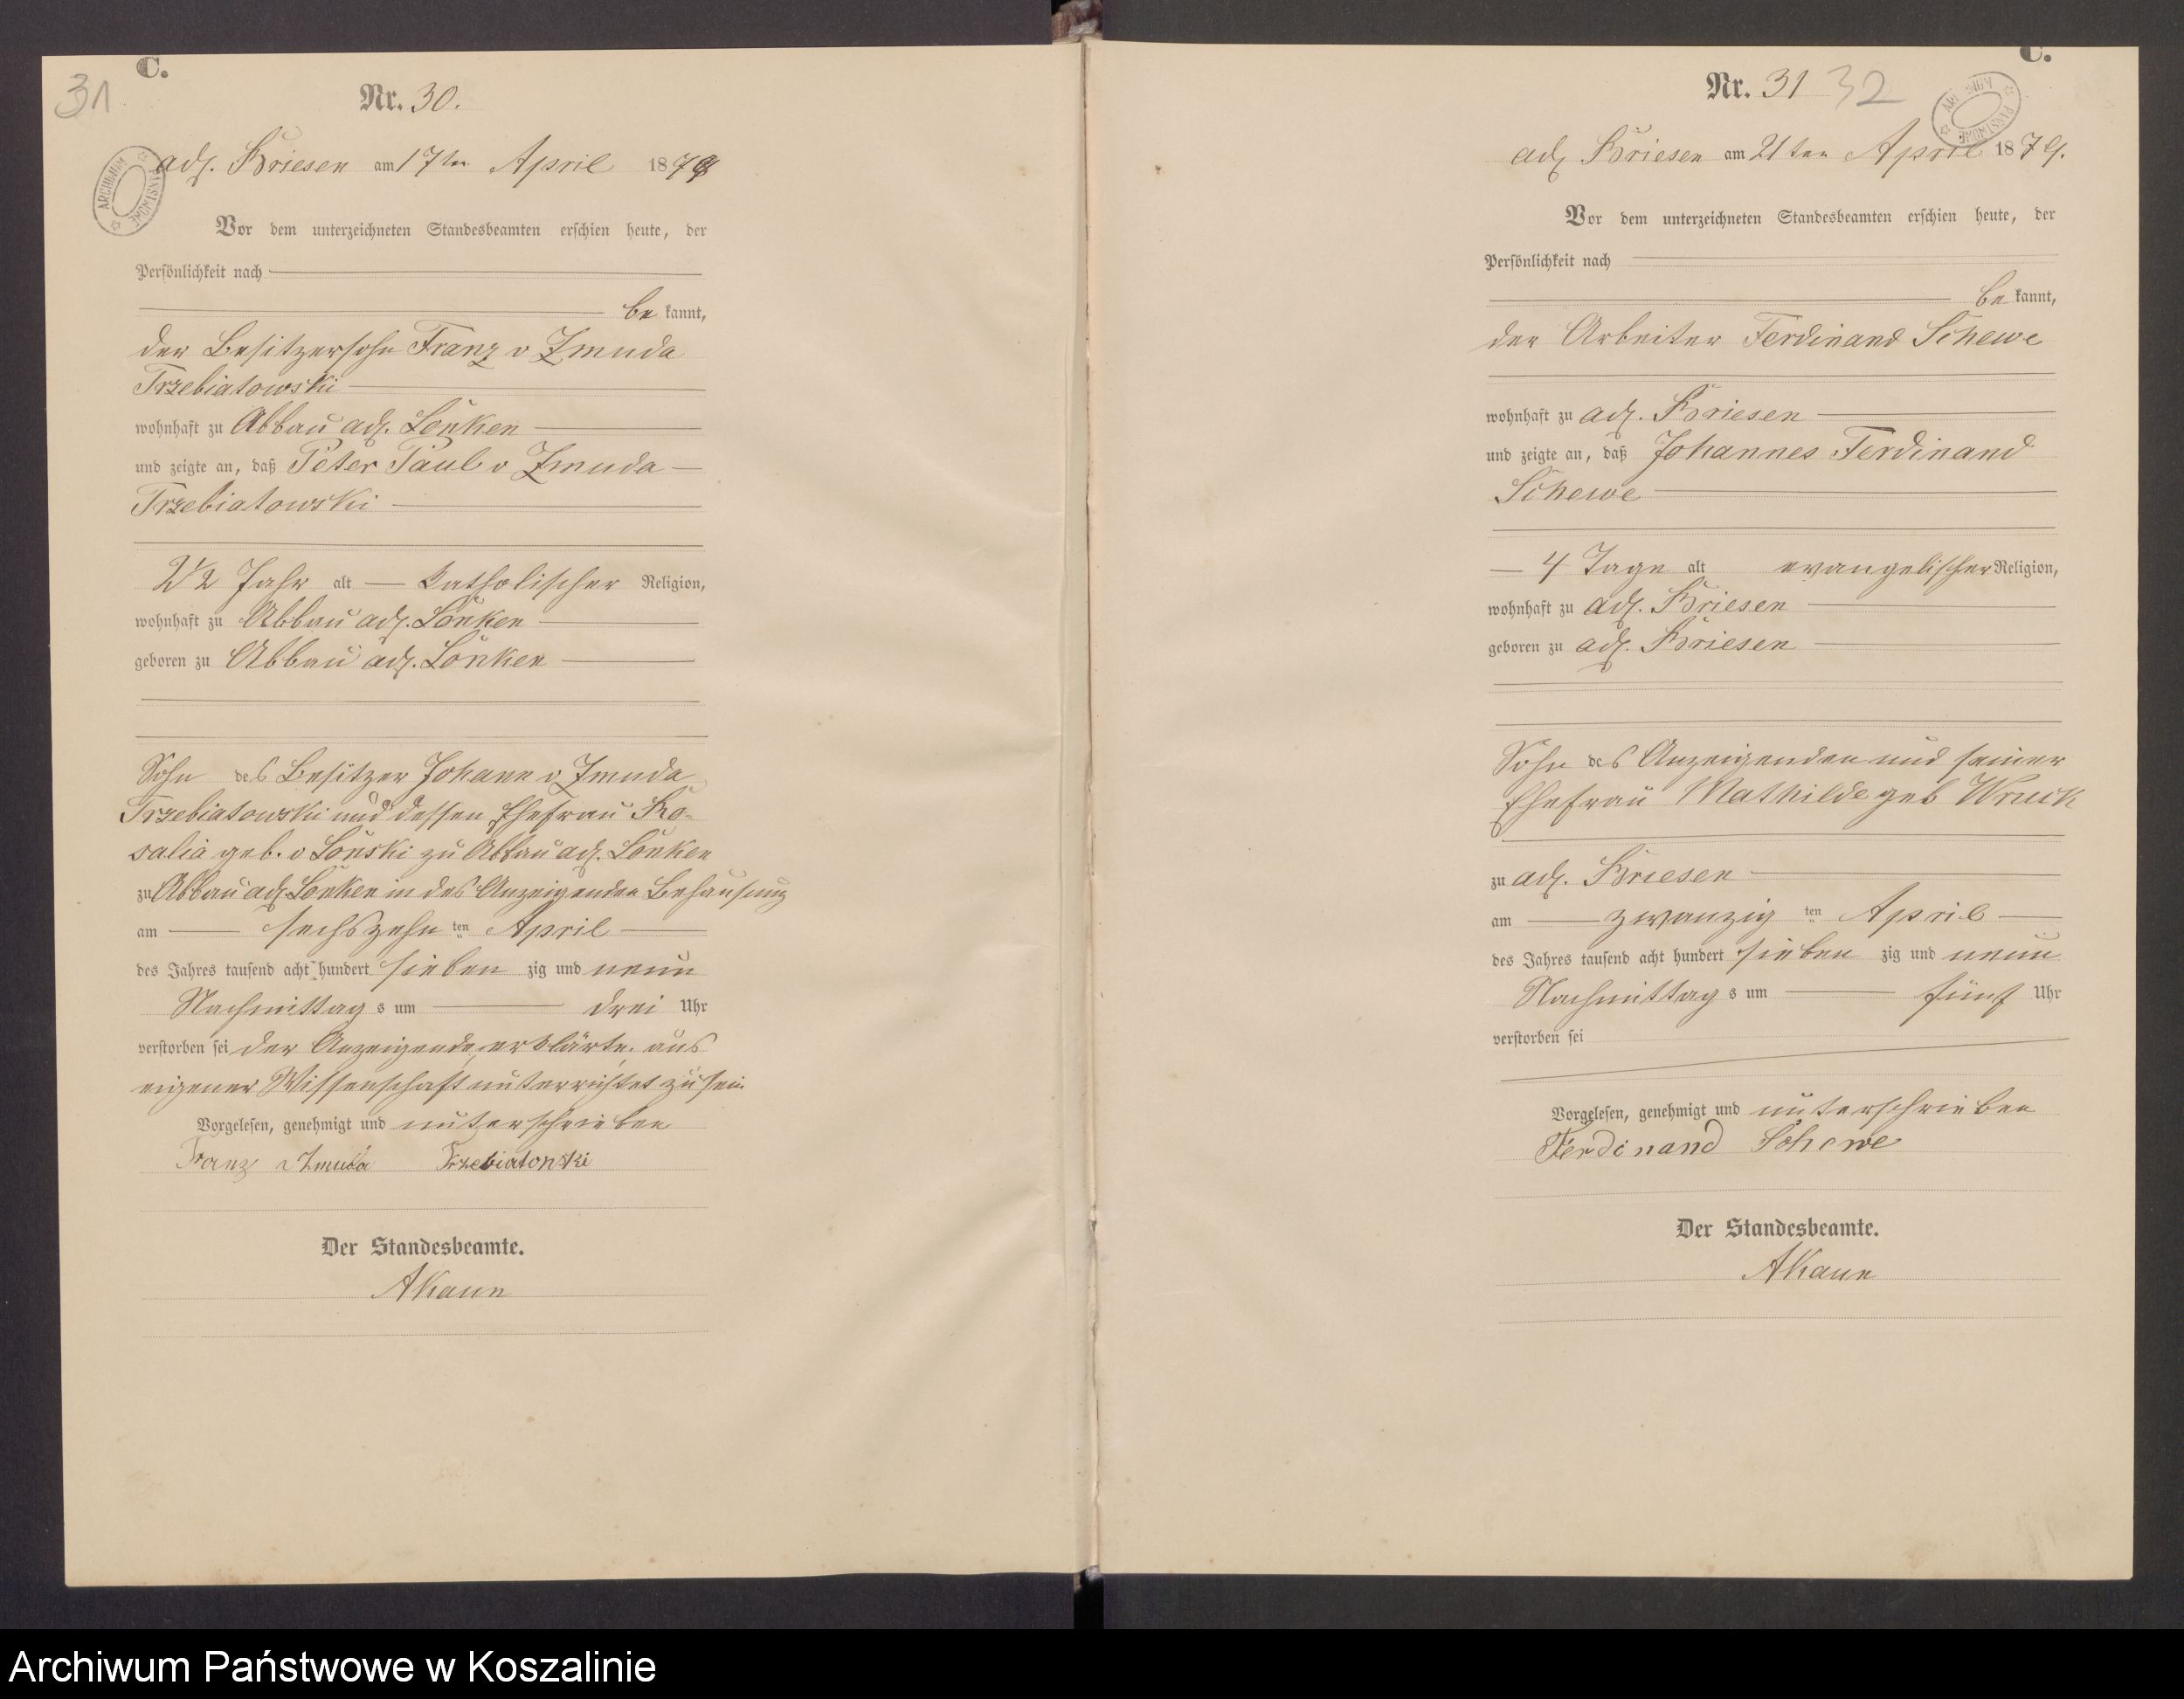 31
C.
Nr. 30.
adl. Briesen am 17ten April 1879
ARCHIWUM PAŃSTWOWE
Vor dem unterzeichneten Standesbeamten erschien heute, der
Persönlichkeit nach
be kannt,
der Besitzersohn Franz v Zmuda
Trzebiatowski
wohnhaft zu Abbau adl. Lonken
und zeigte an, daß Peter Paul v Zmuda
Trzebiatowski
2 1/2 Jahr alt katholischer Religion,
wohnhaft zu Abbau adl. Lonken
geboren zu Abbau adl. Lonken
Sohn des Besitzer Johann v Zmuda
Trzebiatowski und dessen Ehefrau Ro-
salia geb. v Lonski zu Abbau adl. Lonken
zu Abbau adl. Lonken in des Anzeigenden Behausung
am sechszehn ten April
des Jahres tausend acht hundert sieben zig und neun
Nachmittag s um drei Uhr
verstorben sei der Anzeigende erklärte, aus
eigener Wissenschaft unterrichtet zu sein
Vorgelesen, genehmigt und unterschrieben
Franz Zmuda Trzebiatowski
Der Standesbeamte.
AKaun
C.
Nr. 31 32
ARCHIWUM PAŃSTWOWE
adl. Briesen am 21ten April 1879.
Vor dem unterzeichneten Standesbeamten erschien heute, der
Persönlichkeit nach
be kannt,
der Arbeiter Ferdinand Schewe
wohnhaft zu adl. Briesen
und zeigte an, daß Johannes Ferdinand
Schewe
4 Tage alt evangelischer Religion,
wohnhaft zu adl. Briesen
geboren zu adl. Briesen
Sohn des Anzeigenden und seiner
Ehefrau Mathilde geb Wruck
zu adl. Briesen
am zwanzig ten April
des Jahres tausend acht hundert sieben zig und neun
Nachmittag s um fünf Uhr
verstorben sei
Vorgelesen, genehmigt und unterschrieben
Ferdinand Schewe
Der Standesbeamte.
AKaun
Archiwum Państwowe w Koszalinie